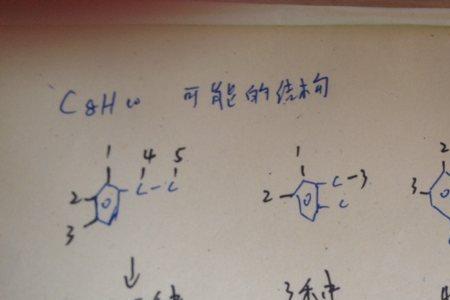 C8H10 可能的结构
1 4 5 1 2
2 C-C 2 C-3 3
3 C
3种 4